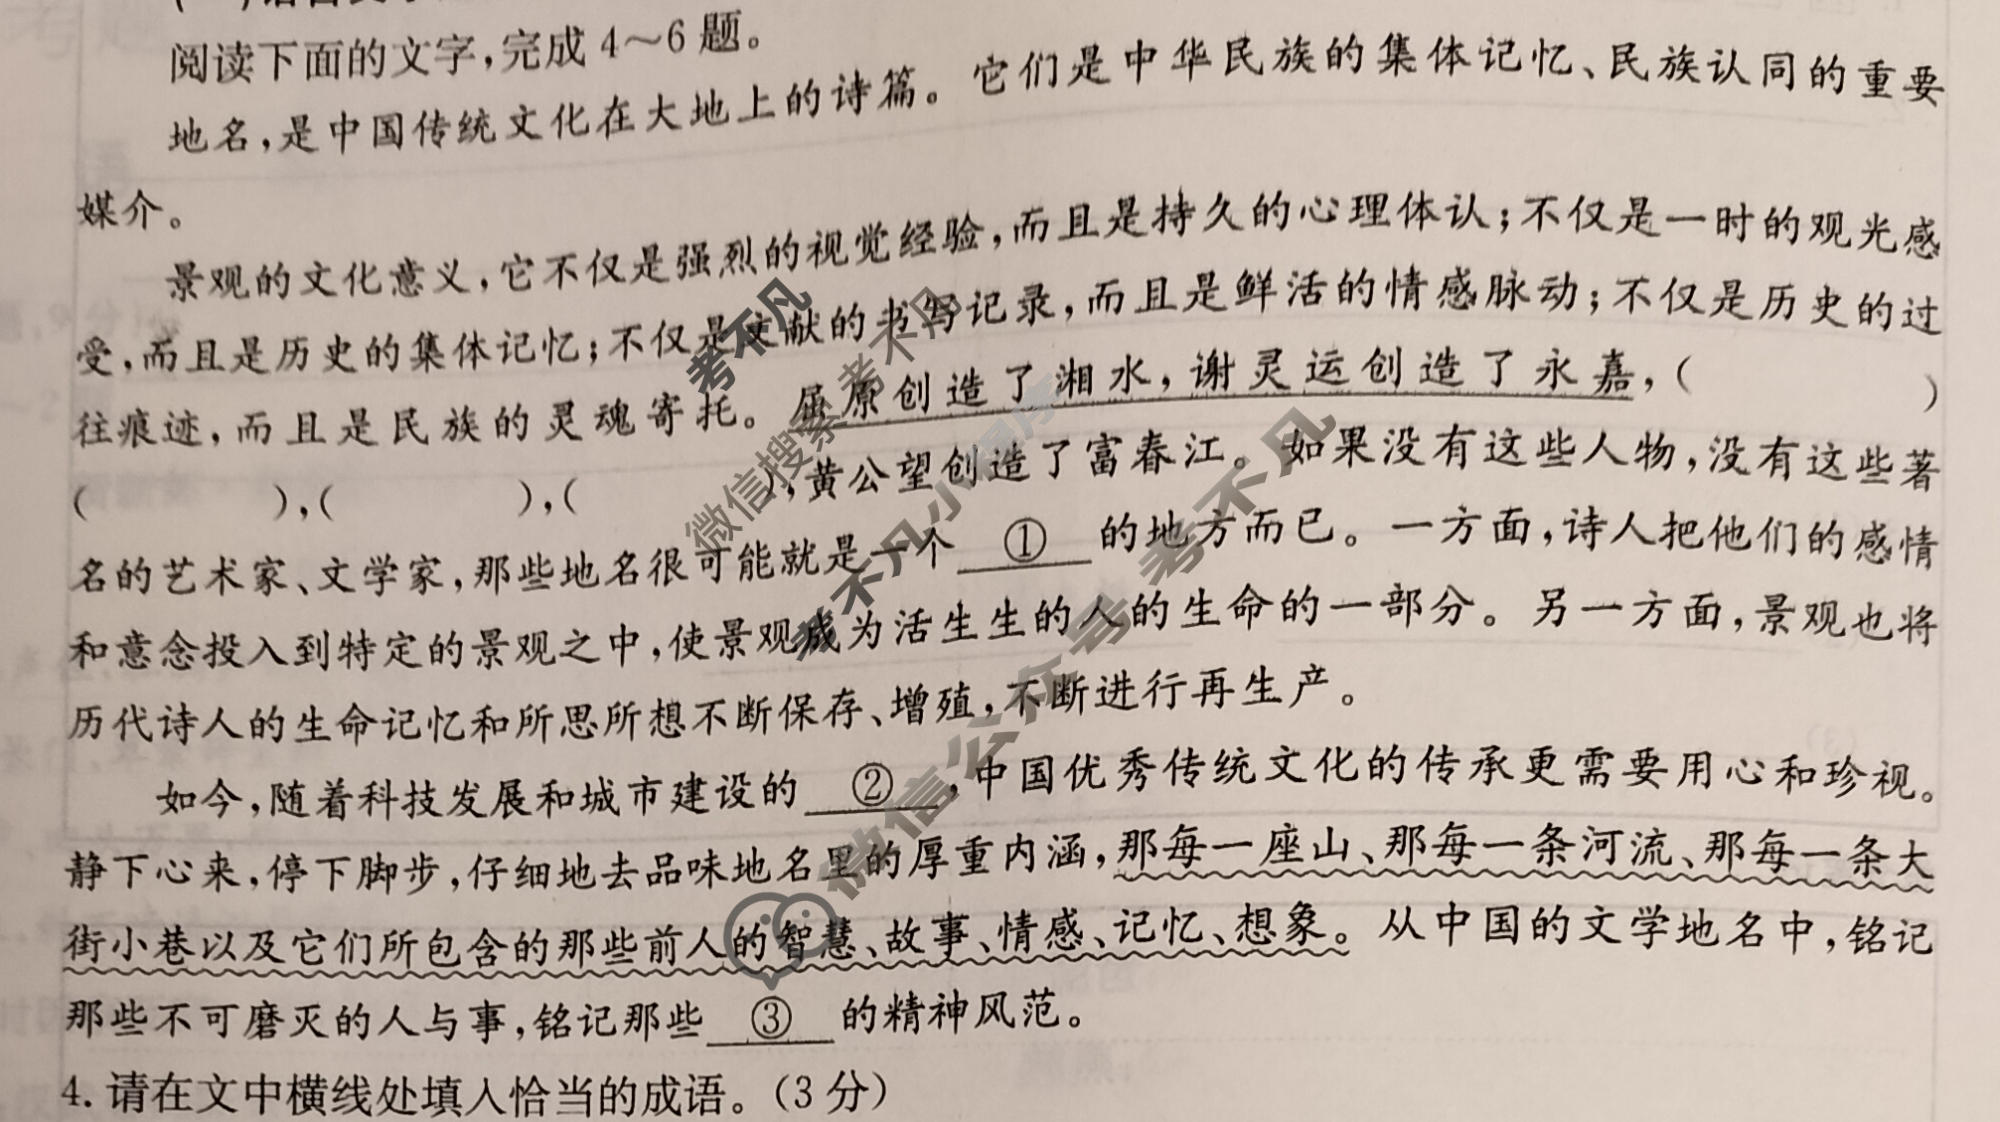 阅读下面的文字,完成4～6题。
地名,是中国传统文化在大地上的诗篇。它们是中华民族的集体记忆、民族认同的重要
媒介。
景观的文化意义,它不仅是强烈的视觉经验,而且是持久的心理体认;不仅是一时的观光感
受,而且是历史的集体记忆;不仅是文献的书写记录,而且是鲜活的情感脉动;不仅是历史的过
往痕迹,而且是民族的灵魂寄托。屈原创造了湘水,谢灵运创造了永嘉,(　　　　)
(　　　　),(　　　　),(　　　　),黄公望创造了富春江。如果没有这些人物,没有这些著
名的艺术家、文学家,那些地名很可能就是一个 ① 的地方而已。一方面,诗人把他们的感情
和意念投入到特定的景观之中,使景观成为活生生的人的生命的一部分。另一方面,景观也将
历代诗人的生命记忆和所思所想不断保存、增殖,不断进行再生产。
如今,随着科技发展和城市建设的 ② ,中国优秀传统文化的传承更需要用心和珍视。
静下心来,停下脚步,仔细地去品味地名里的厚重内涵,那每一座山、那每一条河流、那每一条大
街小巷以及它们所包含的那些前人的智慧、故事、情感、记忆、想象。从中国的文学地名中,铭记
那些不可磨灭的人与事,铭记那些 ③ 的精神风范。
4.请在文中横线处填入恰当的成语。(3分)
考不凡
微信搜索考不凡
考不凡小程序
微信公众号 考不凡